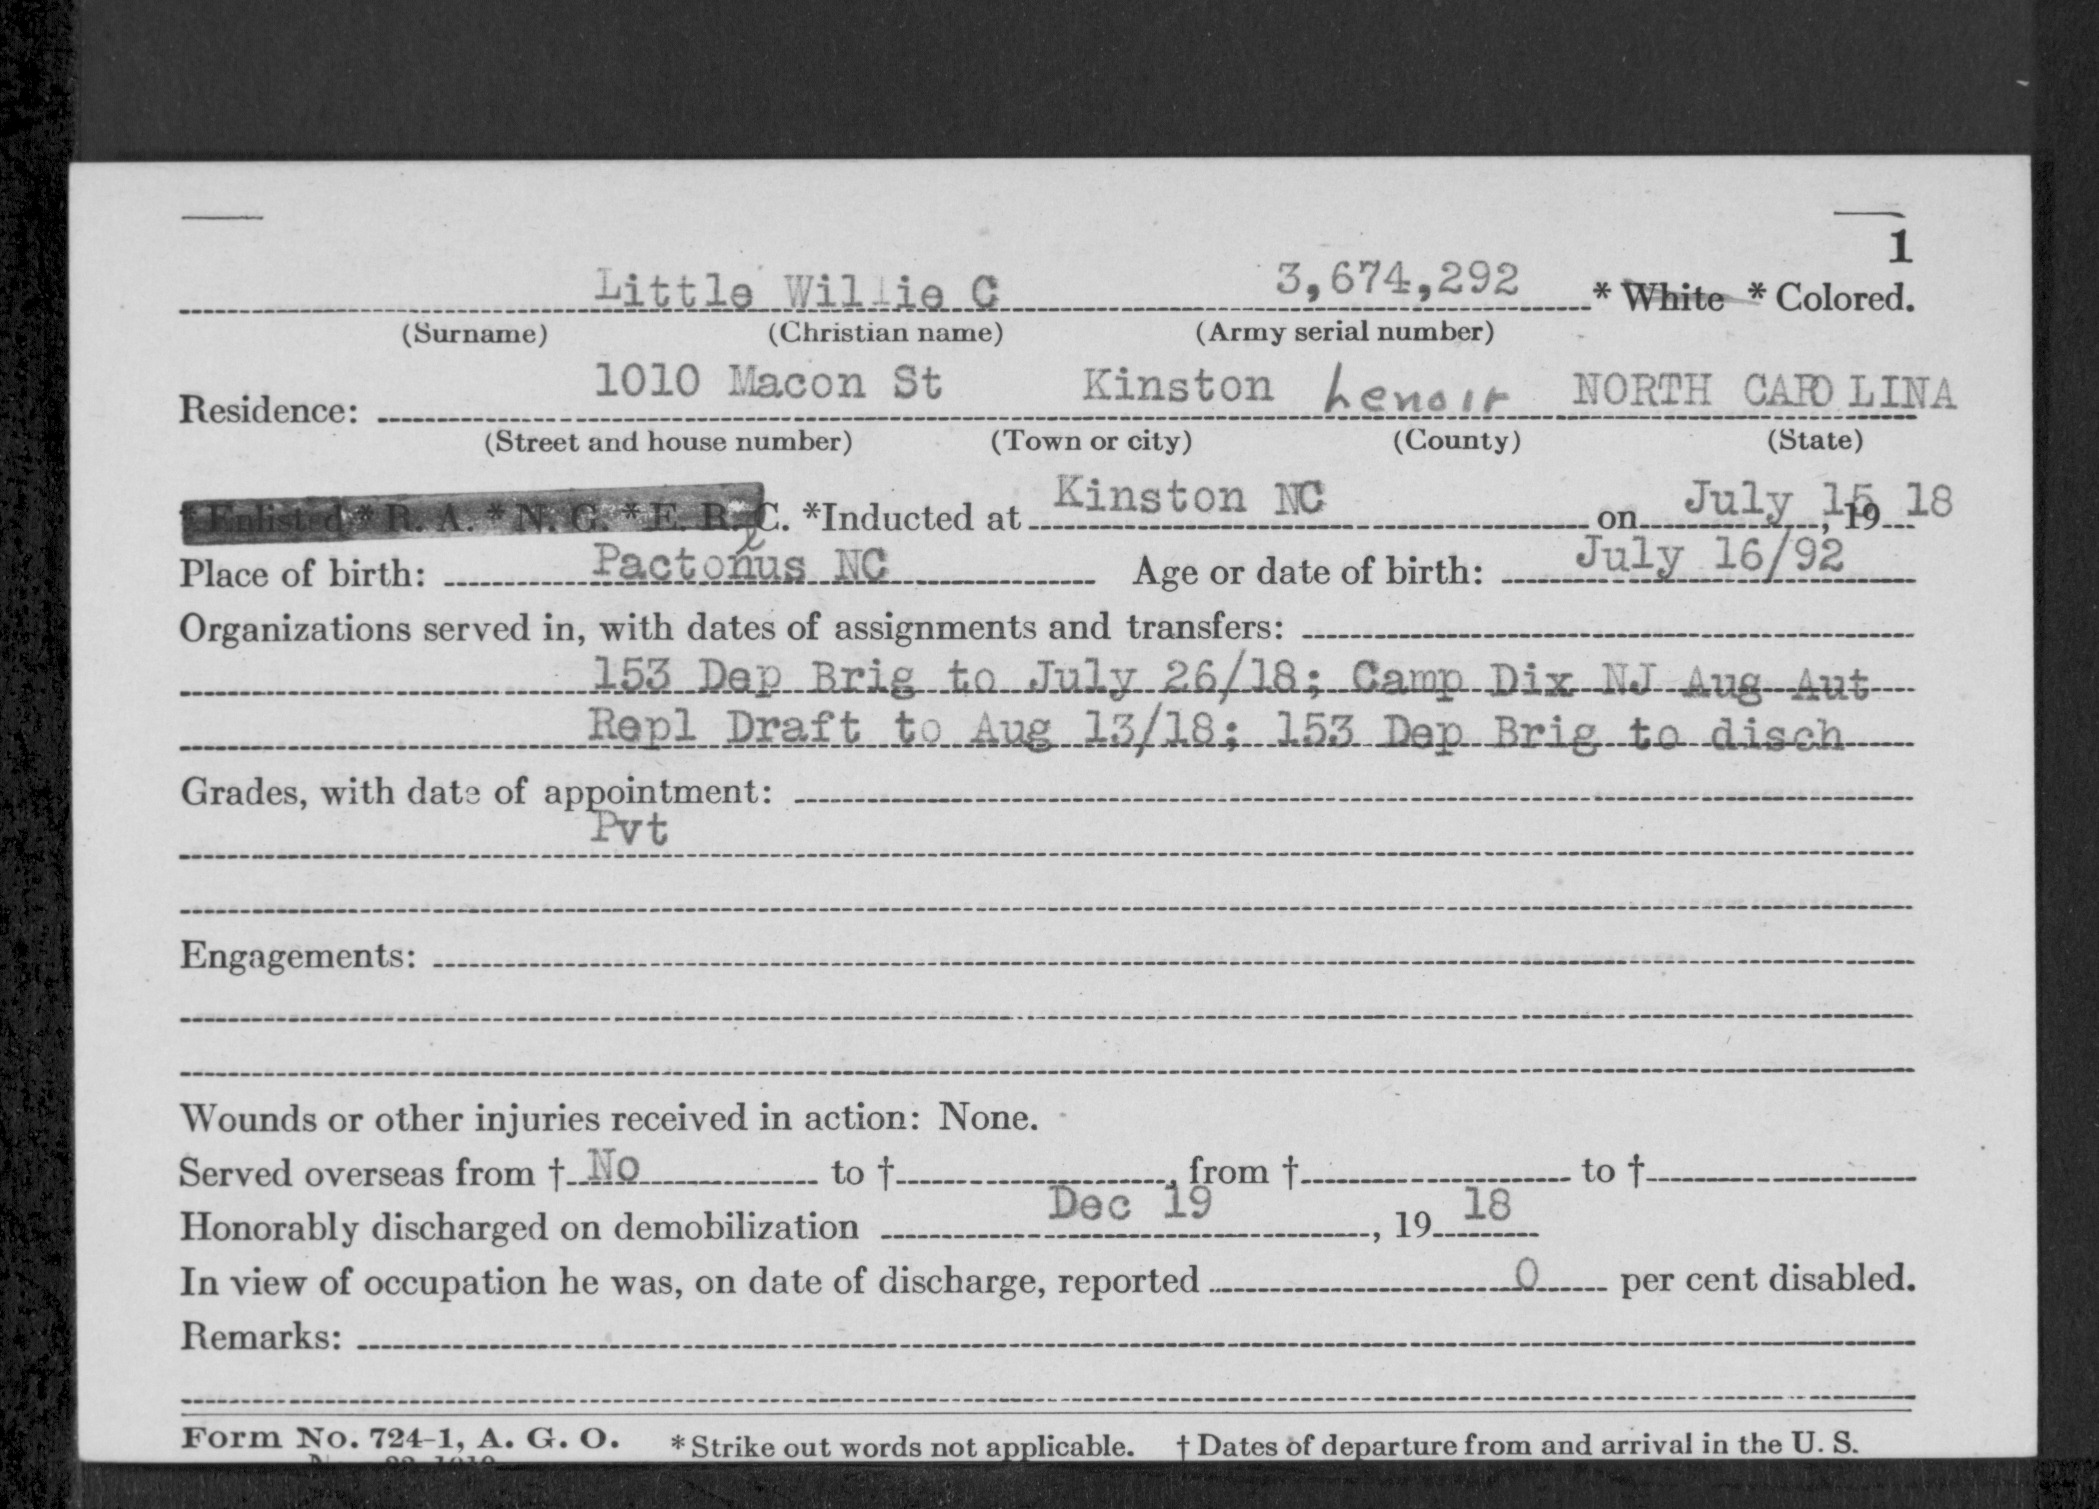 1
Little Willie C 3,674,292 * White * Colored.
(Surname) (Christian name) (Army serial number)
1010 Macon St Kinston Lenoir NORTH CAROLINA
Residence:
(Street and house number) (Town or city) (County) (State)
* Enlisted * R. A. * N. G. * E. R. C. *Inducted at Kinston NC on July 15, 19 18
Place of birth: Pactolus NC Age or date of birth: July 16/92
Organizations served in, with dates of assignments and transfers:
153 Dep Brig to July 26/18; Camp Dix NJ Aug Aut
Repl Draft to Aug 13/18; 153 Dep Brig to disch
Grades, with date of appointment:
Pvt
Engagements:
Wounds or other injuries received in action: None.
Served overseas from † No to †, from † to †
Honorably discharged on demobilization Dec 19, 19 18
In view of occupation he was, on date of discharge, reported 0 per cent disabled.
Remarks:
Form No. 724-1, A. G. O. * Strike out words not applicable. † Dates of departure from and arrival in the U. S.